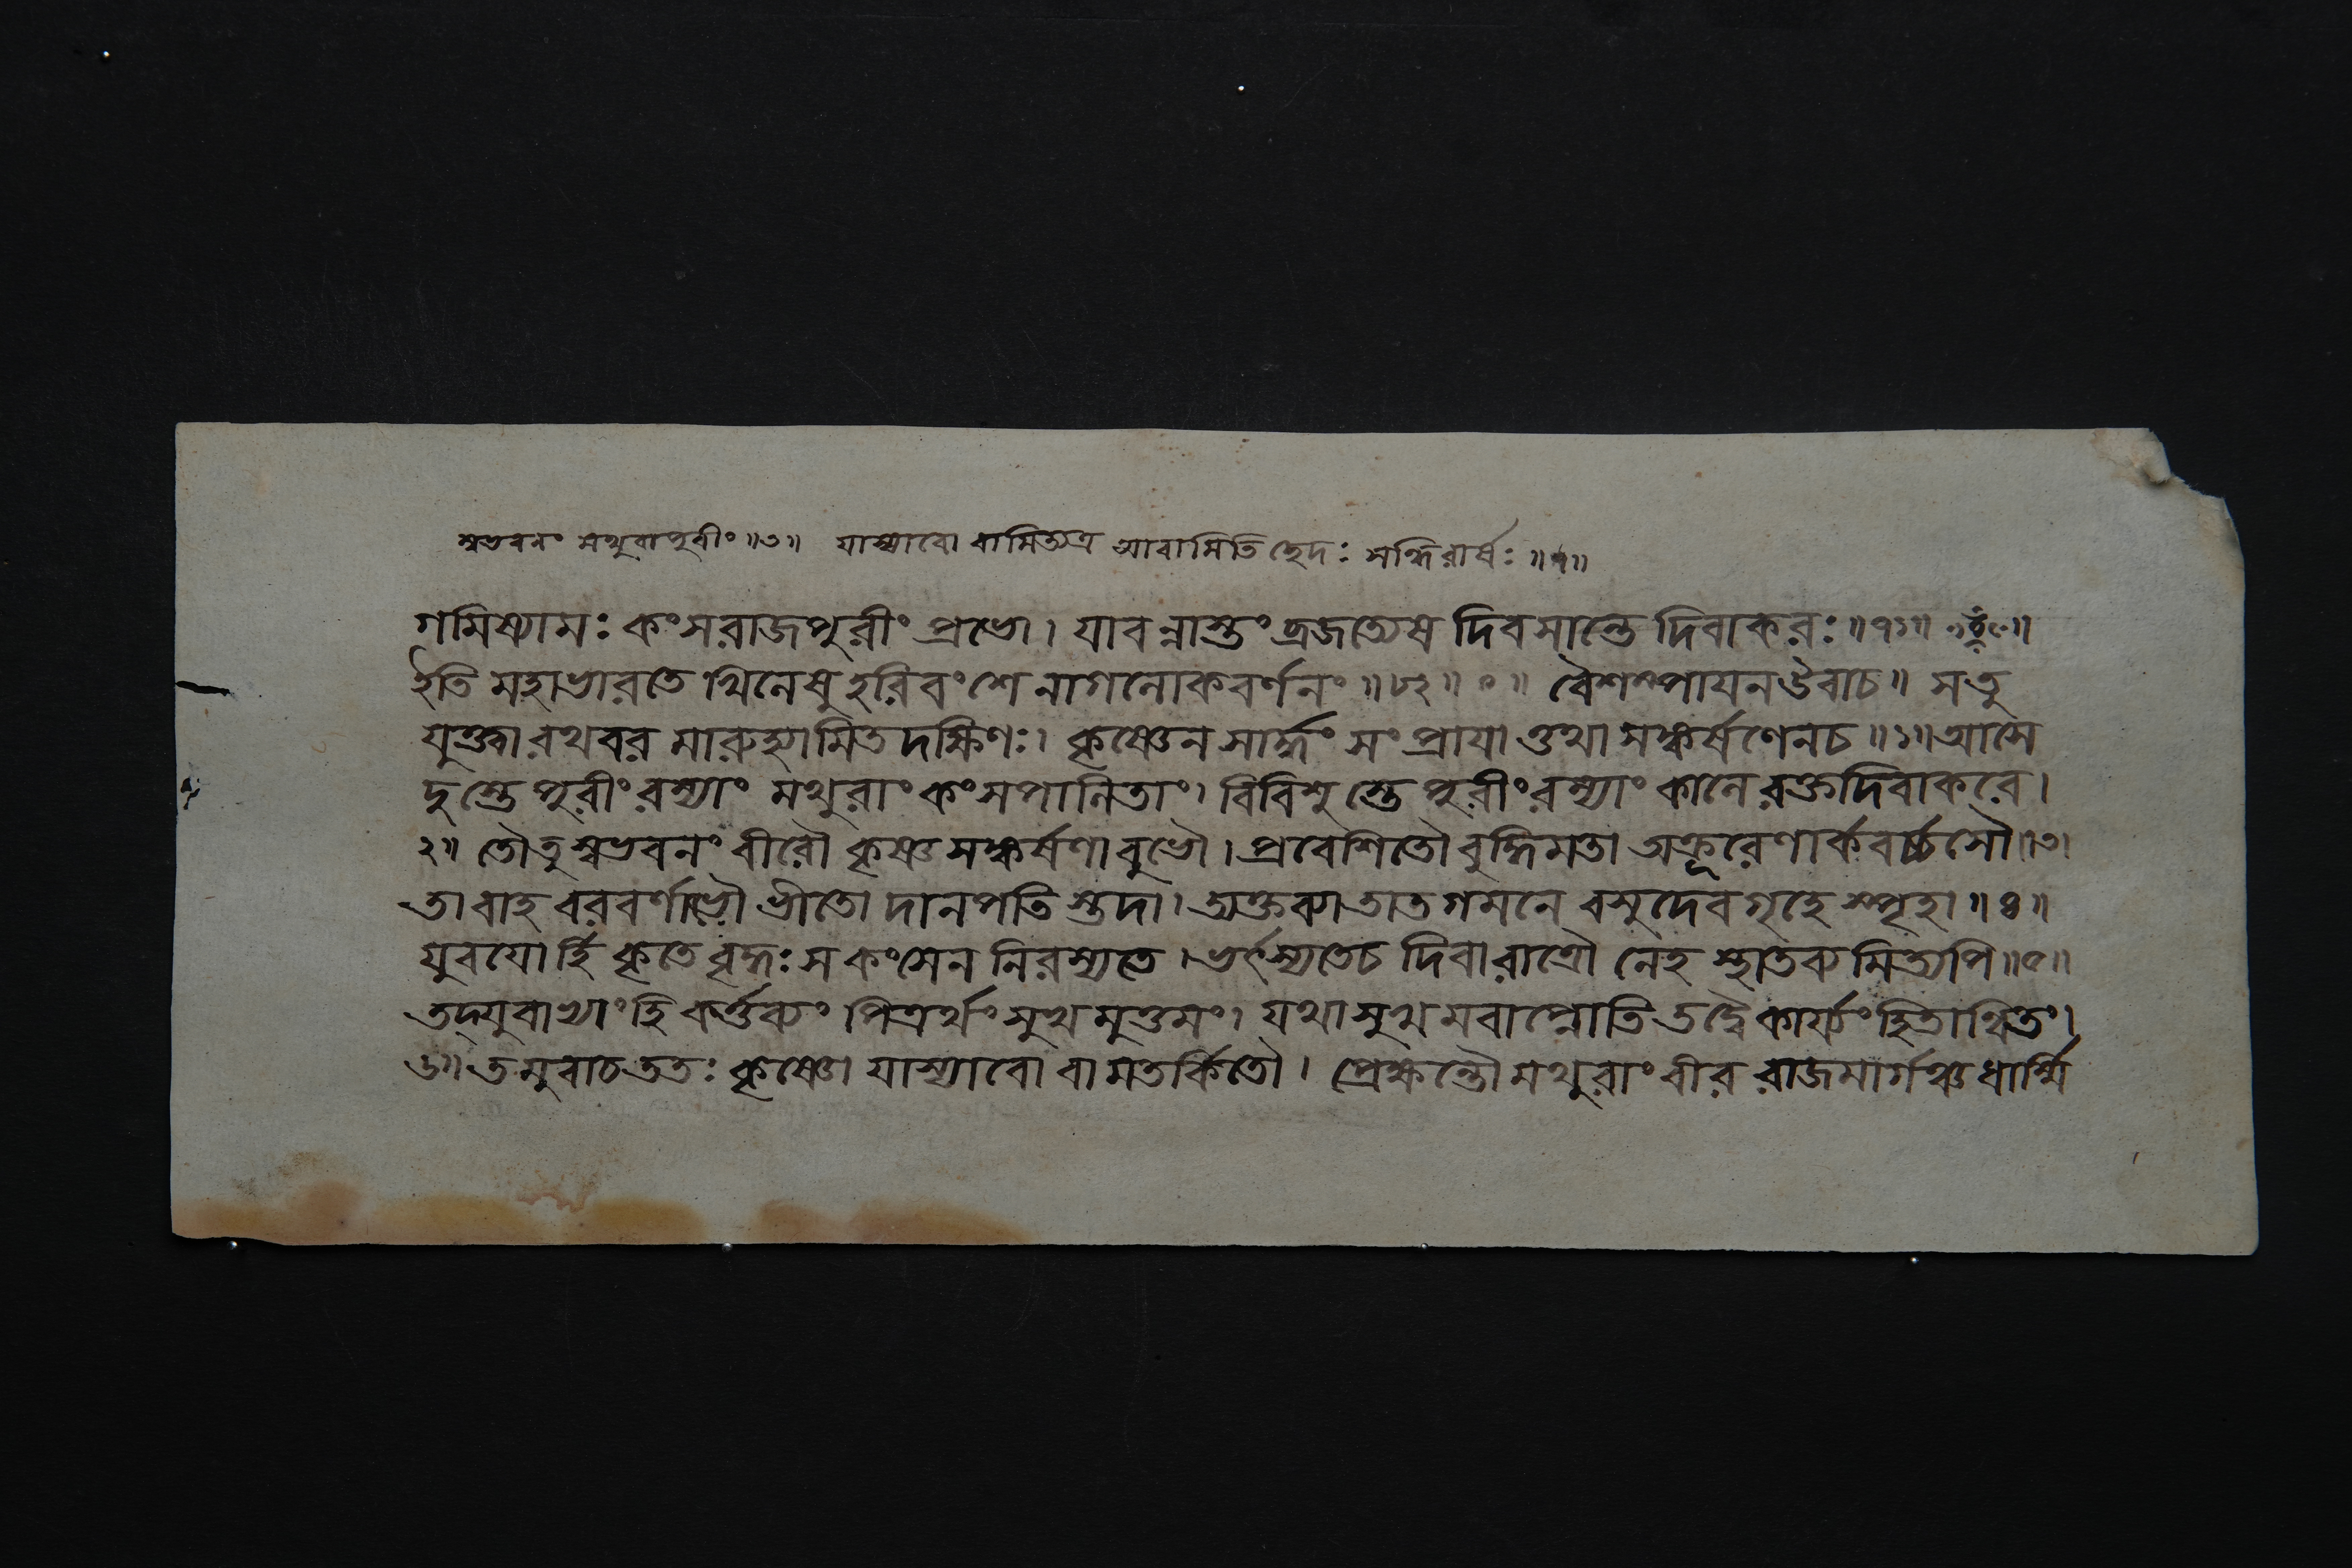 স্বভবনং মথুরাপুরীং ॥৩॥ যাস্যাবো বামিত্যত্র আবামিতি ছেদঃ সন্ধিরার্ষঃ ॥৭॥
গমিষ্যামঃ কংসরাজপুরীং প্রভো। যাবন্নাস্তং ব্রজত্যেষ দিবসান্তে দিবাকরঃ॥৭১॥
ইতি মহাভারতে খিলেষু হরিবংশে নাগলোকবর্ণনং ॥৮২॥ ০॥ বৈশম্পায়ন উবাচ॥ সতু
যুক্ত্বা রথবর মারুহ্যামিতদক্ষিণঃ। কৃষ্ণেন সার্দ্ধং সংপ্রায়া ত্তথা সঙ্কর্ষণেনচ॥১॥ আসে
দুস্তে পুরীং রম্যাং মথুরাং কংসপালিতাং। বিবিশুস্তে পুরীং রম্যাং কালে রক্তদিবাকরে।
২॥ তৌতু স্বভবনং বীরৌ কৃষ্ণসঙ্কর্ষণাবুভৌ। প্রবেশিতৌ বুদ্ধিমতা অক্রূরেণার্কবর্চ্চসৌ॥৩॥
তাবাহ বরবর্ণাভৌ ভীতো দানপতিস্তদা। ত্যক্তব্যা তাত গমনে বসুদেবগৃহে স্পৃহা॥৪॥
যুবয়োর্হি কৃতে বৃদ্ধঃ স কংসেন নিরস্যতে। ভর্ৎস্যতেচ দিবারাত্রৌ নেহ স্থাতব্যমিত্যপি॥৫॥
তদ্যুবাভ্যাং হি কর্ত্তব্যং পিত্রর্থং সুখমুত্তমং। যথা সুখমবাপ্নোতি তদ্বৈ কার্য্যং হিতান্বিতং।
৬॥ তমুবাচ ততঃ কৃষ্ণো যাস্যাবো বামতর্কিতৌ। প্রেক্ষন্তৌ মথুরাং বীর রাজমার্গঞ্চ ধার্ম্মি